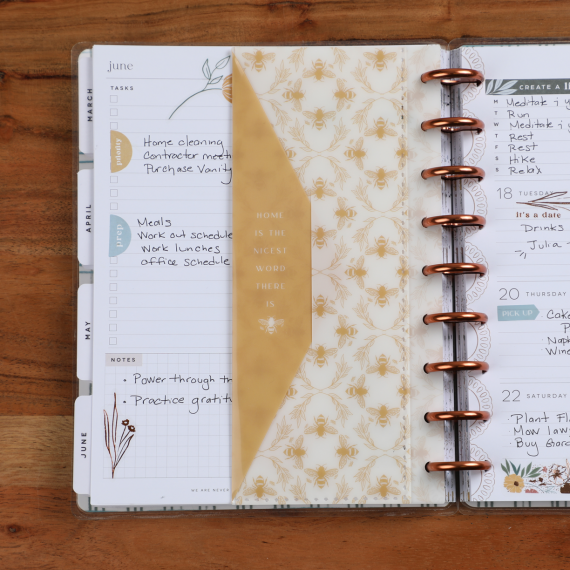 june
TASKS
MARCH
Home cleaning
Contractor meet
Purchase Vanity
APRIL
prep
Meals
Work out schedule
Work lunches
office schedule
MAY
NOTES
Power through th
Practice gratit
JUNE
WE ARE NEVER
HOME
IS THE
NICEST
WORD
THERE
IS
CREATE A
M Meditate
T Run
W Meditate
T Rest
F Rest
S Hike
S Relax
18 TUESDAY
it's a date
Drinks
Julia
20 THURSDAY
PICK UP
Cake
Wine
22 SATURDAY
Plant Fl
Mow law
Buy